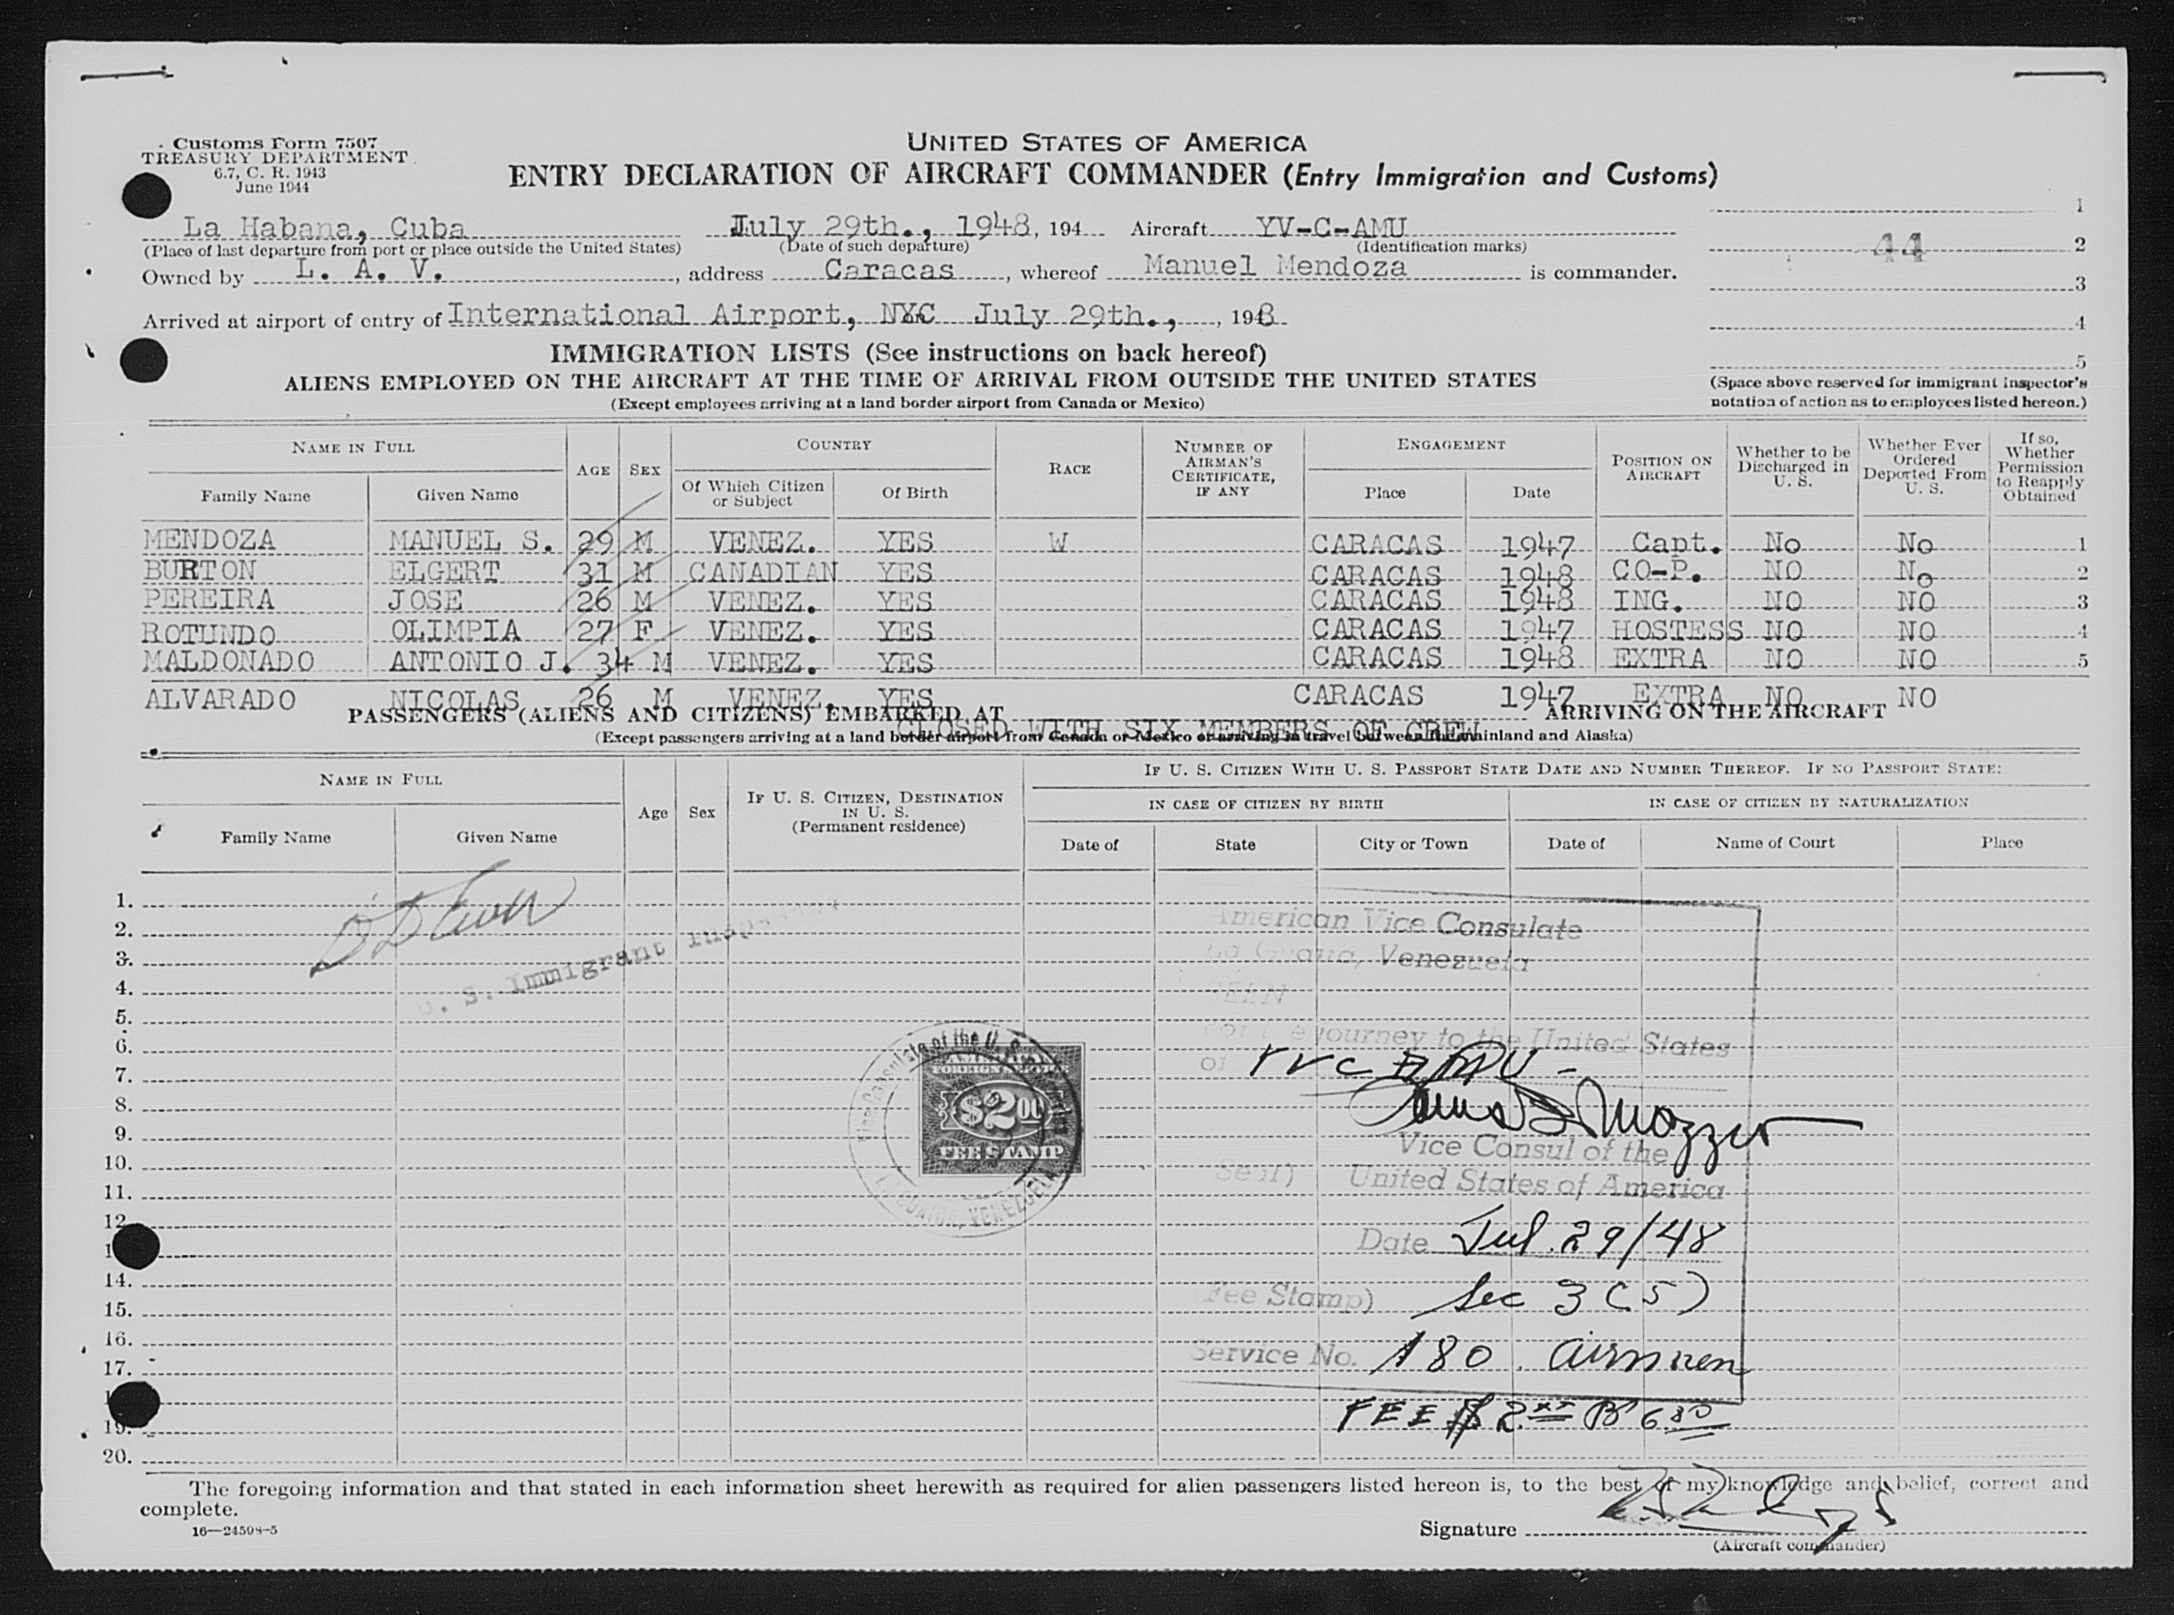 Customs Form 7507
TREASURY DEPARTMENT
6.7, C. R. 1943
June 1944
UNITED STATES OF AMERICA
ENTRY DECLARATION OF AIRCRAFT COMMANDER (Entry Immigration and Customs)
La Habana, Cuba July 29th., 1948, 194 Aircraft YV-C-AMU
(Place of last departure from port or place outside the United States) (Date of such departure) (Identification marks)
Owned by L. A. V., address Caracas, whereof Manuel Mendoza is commander.
Arrived at airport of entry of International Airport, NYC July 29th., , 1948
1
44 2
3
4
5
(Space above reserved for immigrant inspector's notation of action as to employees listed hereon.)
IMMIGRATION LISTS (See instructions on back hereof)
ALIENS EMPLOYED ON THE AIRCRAFT AT THE TIME OF ARRIVAL FROM OUTSIDE THE UNITED STATES
(Except employees arriving at a land border airport from Canada or Mexico)
NAME IN FULL AGE SEX COUNTRY RACE NUMBER OF AIRMAN'S CERTIFICATE, IF ANY ENGAGEMENT POSITION ON AIRCRAFT Whether to be Discharged in U. S. Whether Ever Ordered Deported From U. S. If so, Whether Permission to Reapply Obtained
Family Name Given Name Of Which Citizen or Subject Of Birth Place Date
MENDOZA MANUEL S. 29 M VENEZ. YES W CARACAS 1947 Capt. No No 1
BURTON ELGERT 31 M CANADIAN YES CARACAS 1948 CO-P. NO No 2
PEREIRA JOSE 26 M VENEZ. YES CARACAS 1948 ING. NO NO 3
ROTUNDO OLIMPIA 27 F VENEZ. YES CARACAS 1947 HOSTESS NO NO 4
MALDONADO ANTONIO J. 34 M VENEZ. YES CARACAS 1948 EXTRA NO NO 5
ALVARADO NICOLAS 26 M VENEZ. YES CARACAS 1947 EXTRA NO NO
PASSENGERS (ALIENS AND CITIZENS) EMBARKED AT ARRIVING ON THE AIRCRAFT
CLOSED WITH SIX MEMBERS OF CREW
(Except passengers arriving at a land border airport from Canada or Mexico or arriving in travel between the mainland and Alaska)
NAME IN FULL Age Sex IF U. S. CITIZEN, DESTINATION IN U. S. (Permanent residence) IF U. S. CITIZEN WITH U. S. PASSPORT STATE DATE AND NUMBER THEREOF. IF NO PASSPORT STATE:
IN CASE OF CITIZEN BY BIRTH IN CASE OF CITIZEN BY NATURALIZATION
Family Name Given Name Date of State City or Town Date of Name of Court Place
1.
2.
3.
4.
5.
6.
7.
8.
9.
10.
11.
12
14.
15.
16.
17.
19.
20.
U. S. Immigrant Inspector
American Vice Consulate
La Guaira, Venezuela
SEEN
For the journey to the United States
of YVC AMU -
Vice Consul of the
(Seal) United States of America
Date Jul. 29/48
(Fee Stamp) Sec 3 (5)
Service No. 180. airmen
FEE $ 2 Bs 6.80
AMERICAN
FOREIGN SERVICE
$2.00
FEE STAMP
Vice Consulate of the U. S.
VENEZUELA
The foregoing information and that stated in each information sheet herewith as required for alien passengers listed hereon is, to the best of my knowledge and belief, correct and
complete.
16—24598-5
Signature
(Aircraft commander)